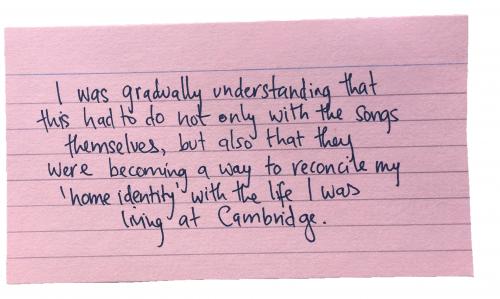 I was gradually understanding that
this had to do not only with the songs
themselves, but also that they
were becoming a way to reconcile my
'home identity' with the life I was
living at Cambridge.